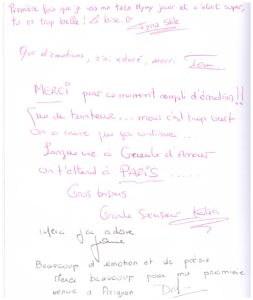 Première fois que je vois ma tata Mymy jouer et c'était super,
tu es trop belle! La bise
Que d'émotions, j'ai adoré, merci
MERCI pour ce moment rempli d'émotion!!
Que du bonheur... mais c'est trop court
On a envie que ça continue...
Longue vie à Gueule d'Amour
On t'attend à PARIS......
Gros bisous
Merci j'ai adoré
Beaucoup d'émotion et de poésie
Merci beaucoup pour ma première
venue à Avignon